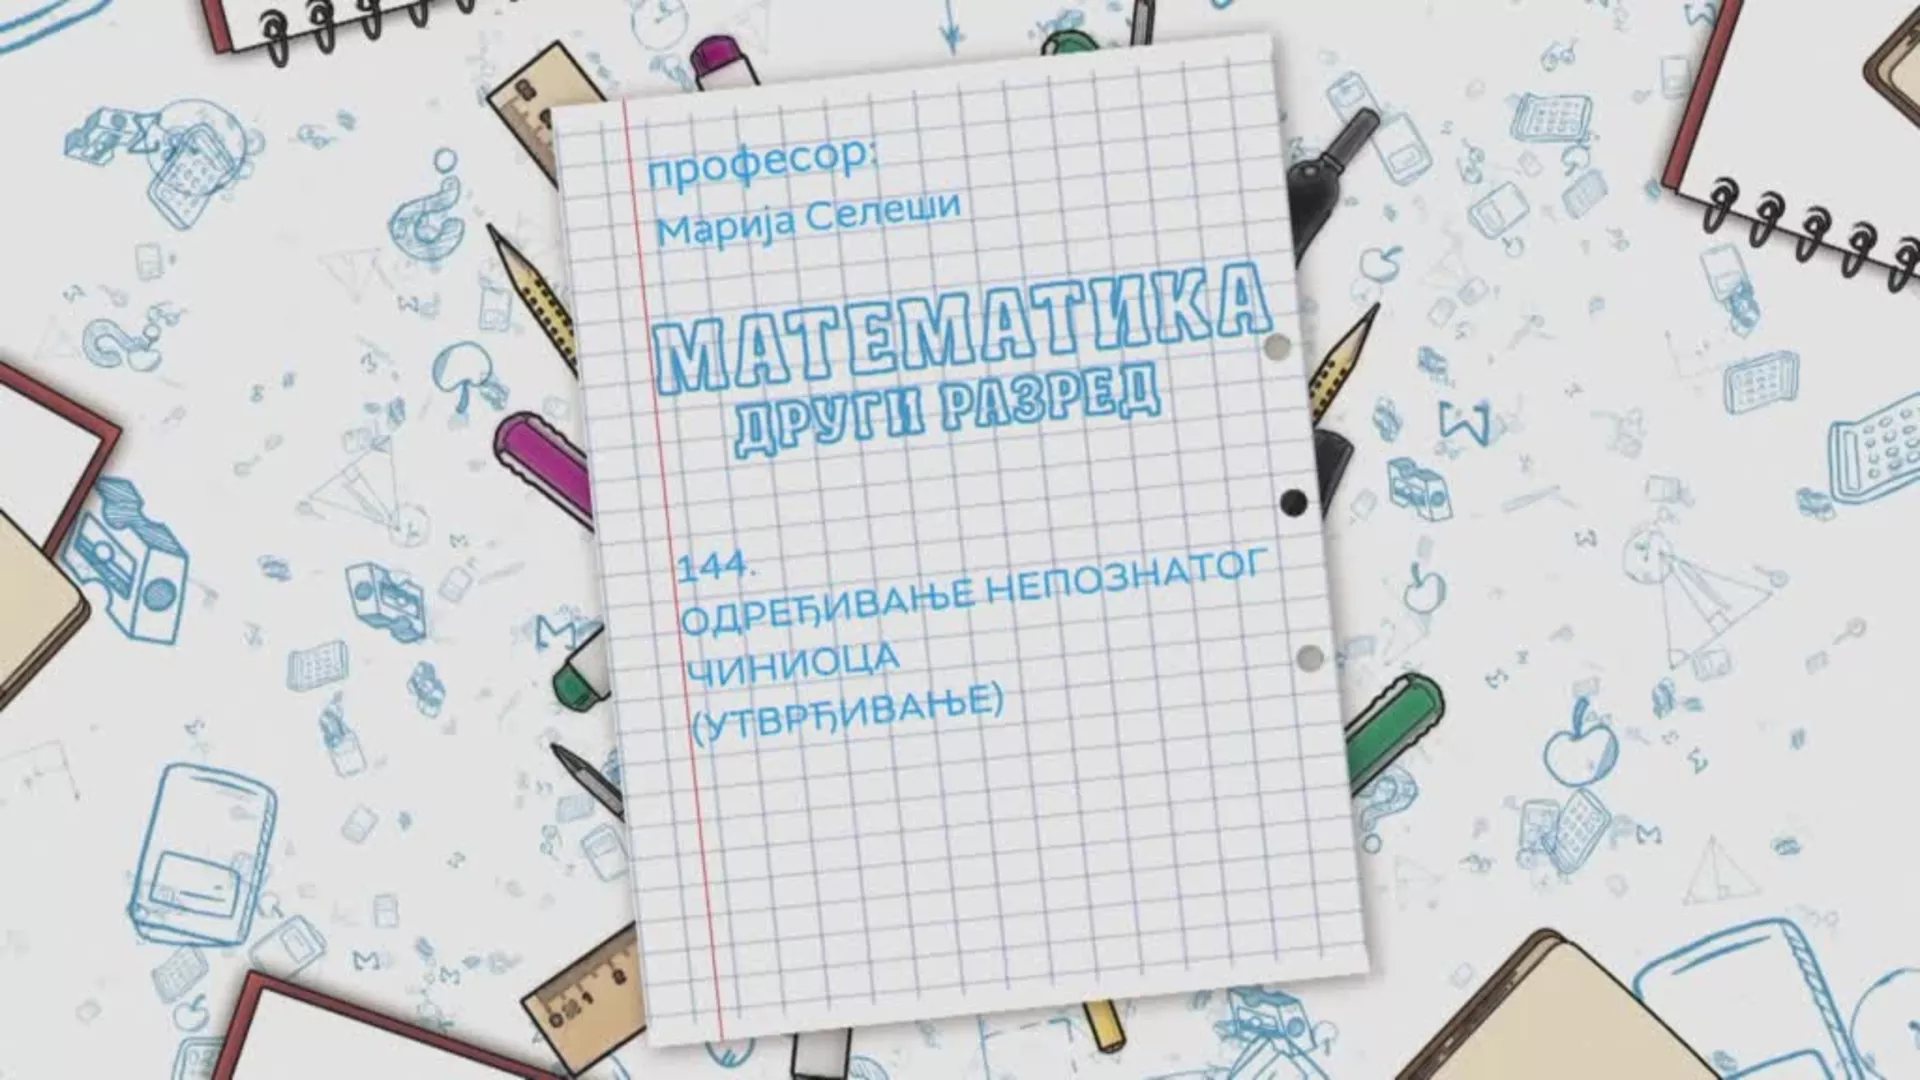 професор:
Марија Селеши
МАТЕМАТИКА
ДРУГИ РАЗРЕД
144.
ОДРЕЂИВАЊЕ НЕПОЗНАТОГ
ЧИНИОЦА
(УТВРЂИВАЊЕ)